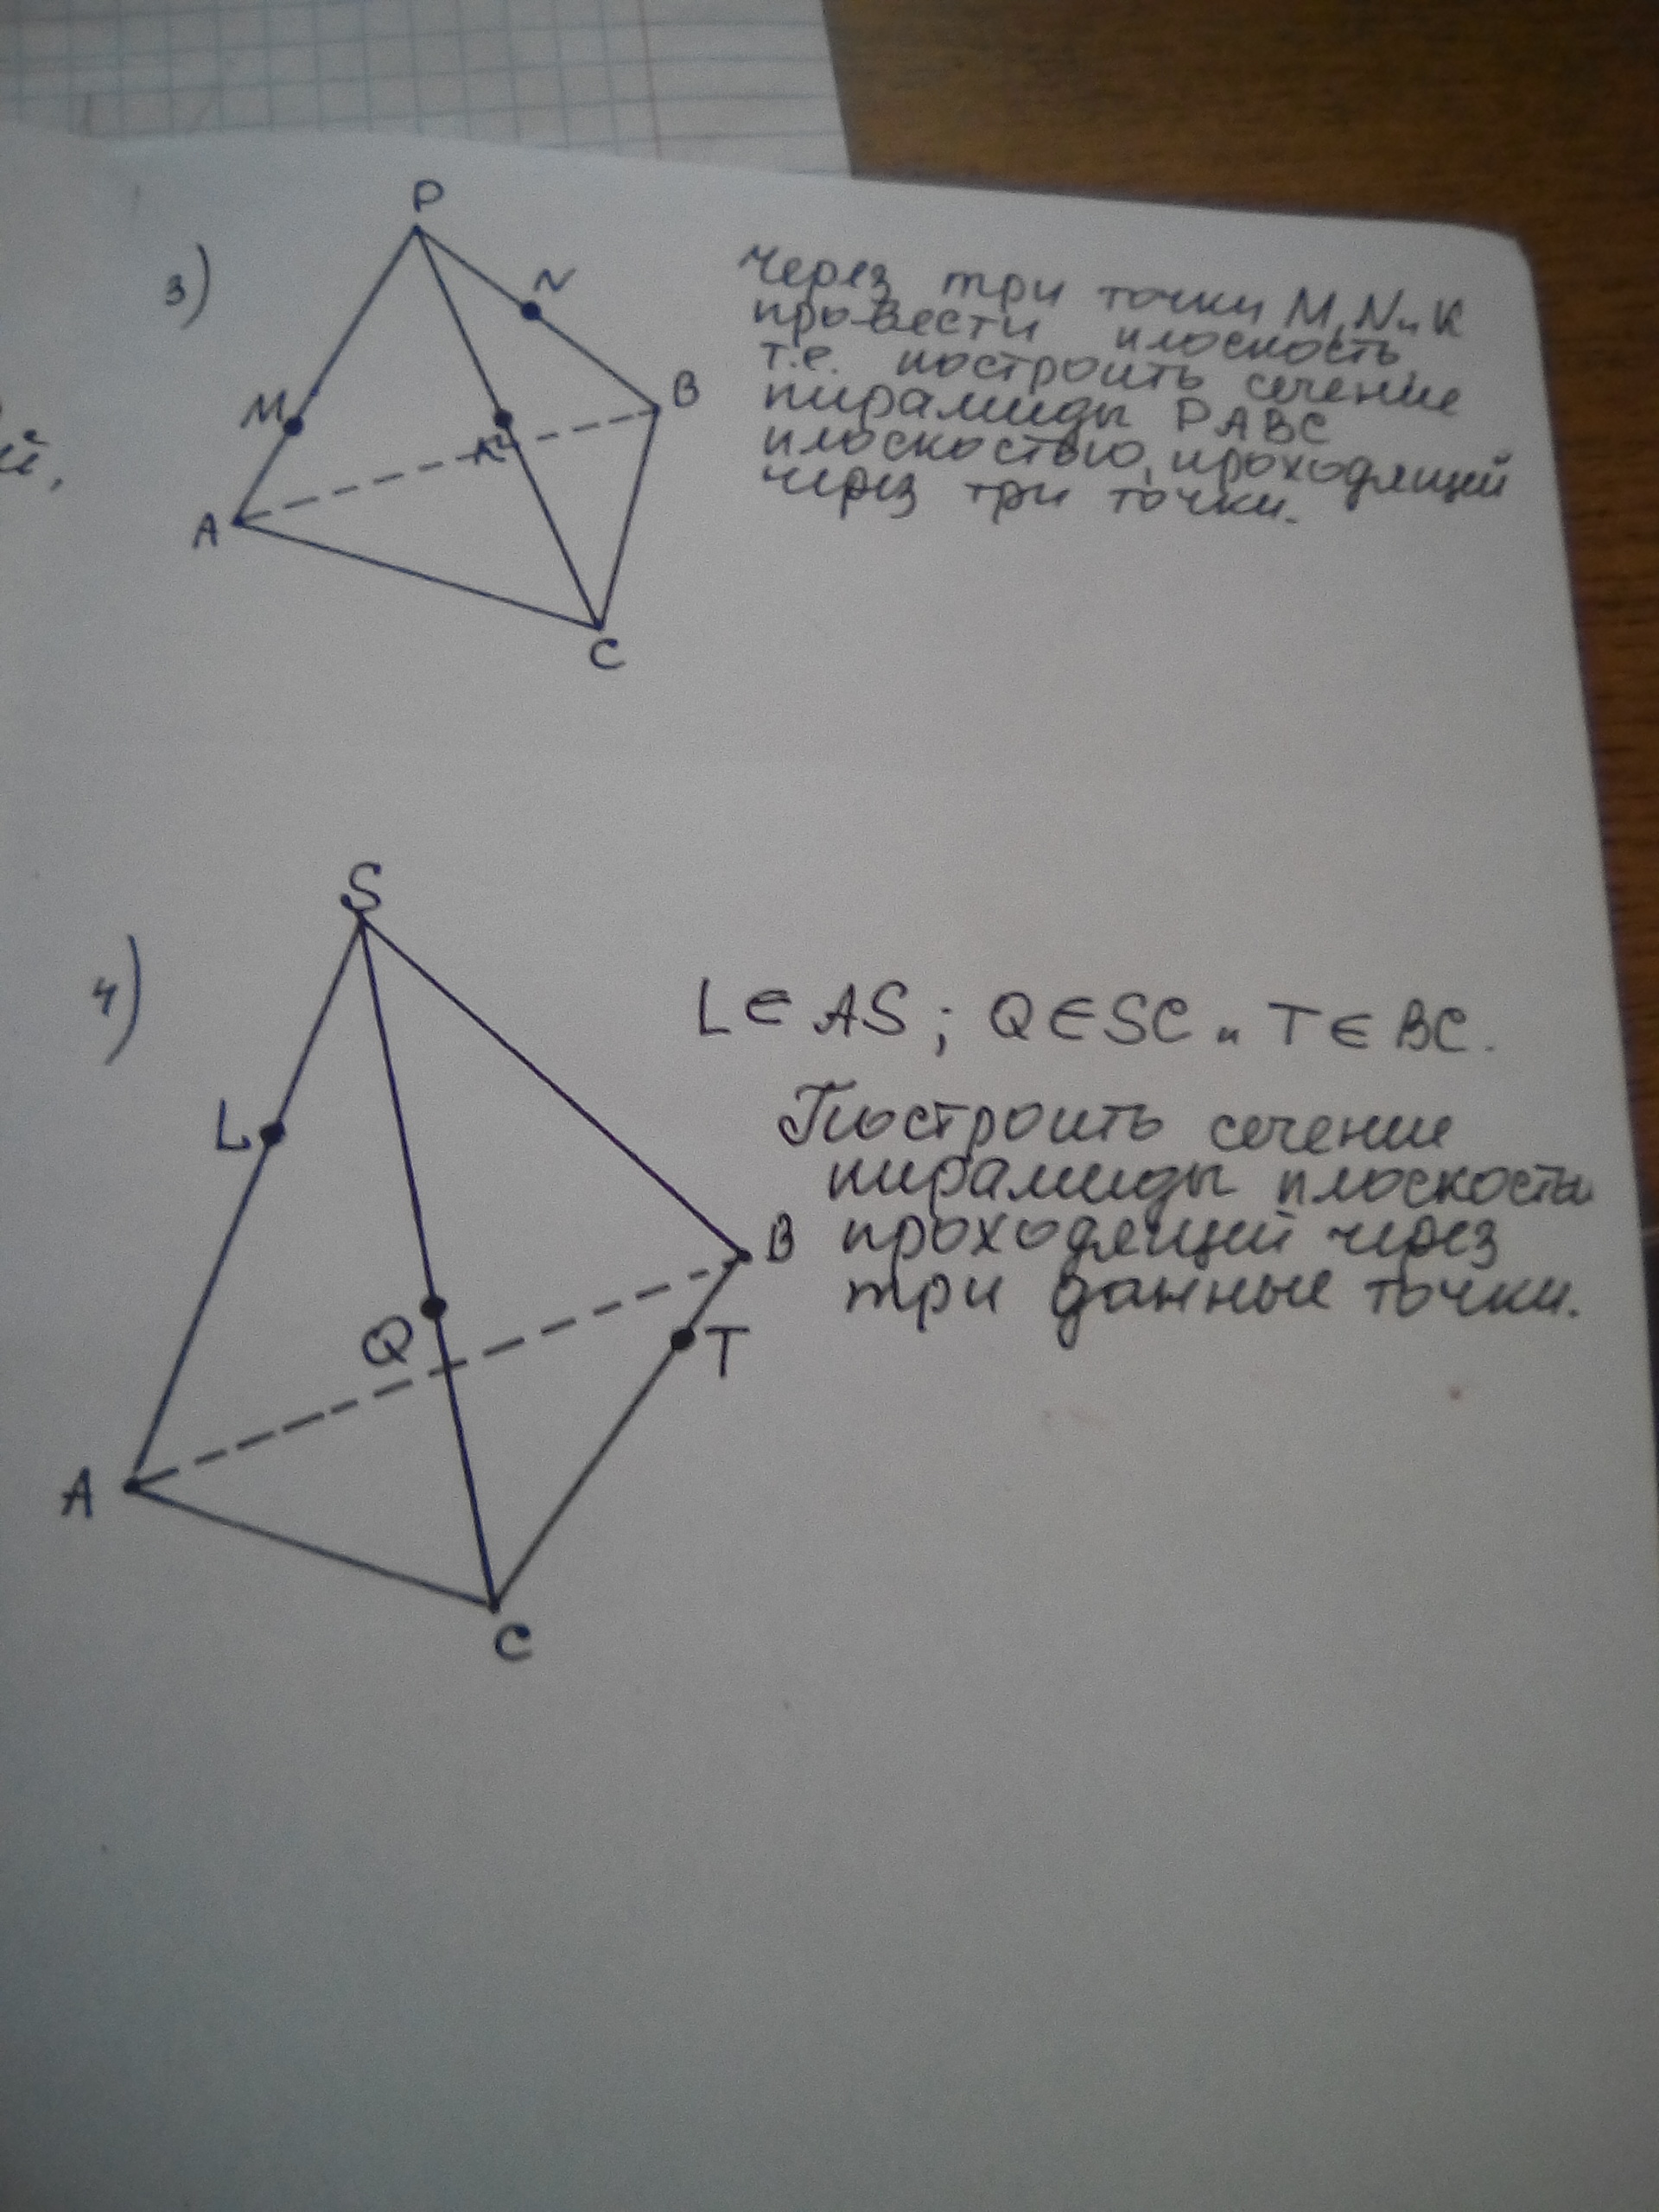 3)
P
N
M
B
K
A
C
Через три точки M, N и K
провести плоскость,
т.е. построить сечение
пирамиды PABC
плоскостью, проходящий
через три точки.
4)
S
L
B
Q
T
A
C
L∈AS; Q∈SC и T∈BC.
Построить сечение
пирамиды плоскость
проходящий через
три данные точки.